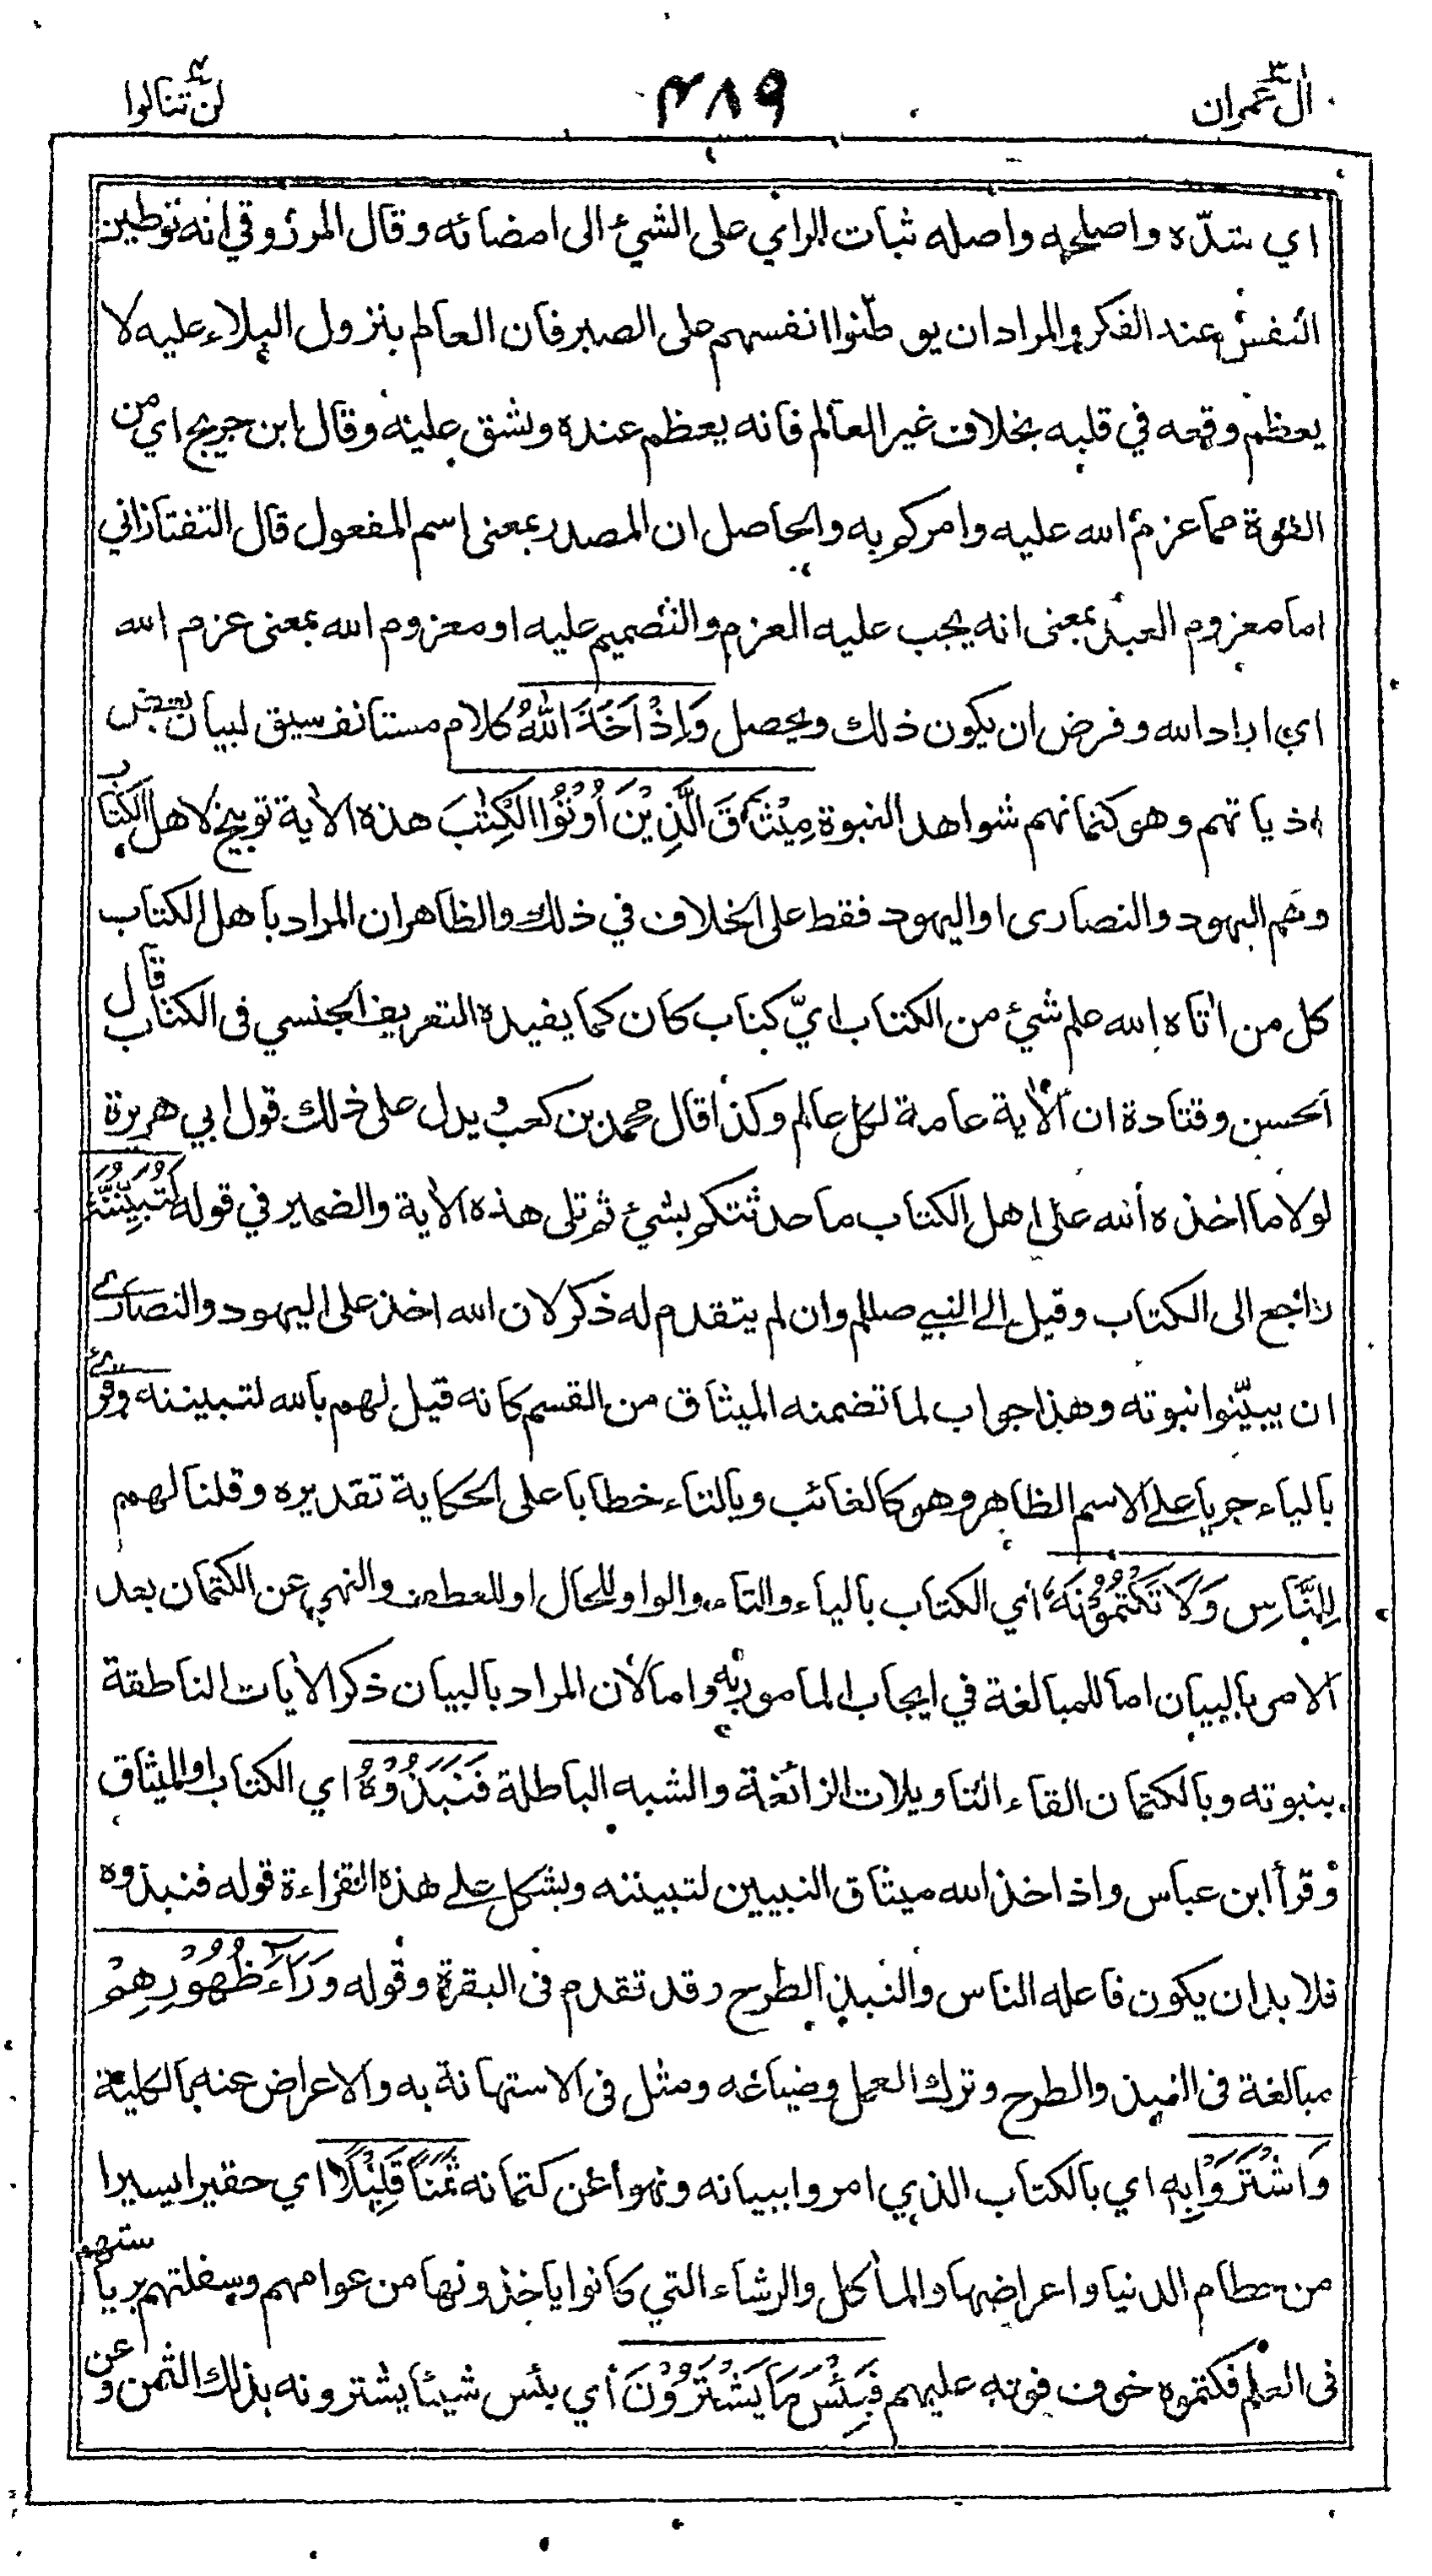 اٰل عمران ٣
٤٨٩
لن تنالوا ٤
اي سدّه واصلحه واصله ثبات الراي على الشيء الى امضائه وقال المرزوقي انه توطين
النفس عند الفكر والمراد ان يوطّنوا انفسهم على الصبر فان العالم بنزول البلاء عليه لا
يعظم وقعه في قلبه بخلاف غير العالم فانه يعظم عنده ويشق عليه وقال ابن جريج اي من
القوة مما عزم الله عليه وامركم به والحاصل ان المصدر بمعنى اسم المفعول قال التفتازاني
اما معزوم العبد بمعنى انه يجب عليه العزم والتصميم عليه او معزوم الله بمعنى عزم الله
اي اراد الله وفرض ان يكون ذلك ويحصل وَاِذْ اَخَذَ اللّٰهُ كلام مستانف سيق لبيان بعض
اذياتهم وهو كتمانهم شواهد النبوة مِيْثَاقَ الَّذِيْنَ اُوْتُوا الْكِتٰبَ هذه الاٰية توبيخ لاهل الكتاب
وهم اليهود والنصارى او اليهود فقط على الخلاف في ذلك والظاهر ان المراد باهل الكتاب
كل من اٰتاه الله علم شيء من الكتاب ايّ كتاب كان كما يفيده التعريف الجنسي في الكتاب قال
الحسن وقتادة ان الاٰية عامة لكل عالم وكذا قال محمد بن كعب ويدل على ذلك قول ابي هريرة
لولا ما اخذه الله على اهل الكتاب ما حدثتكم بشيء ثم تلى هذه الاٰية والضمير في قوله لَتُبَيِّنُنَّهٗ
راجع الى الكتاب وقيل الى النبي صللم وان لم يتقدم له ذكر لان الله اخذ على اليهود والنصارى
ان يبيّنوا نبوته وهذا جواب لما تضمنه الميثاق من القسم كانه قيل لهم بالله لتبيننه وقرئ
بالياء جريا على الاسم الظاهر وهو كالغائب وبالتاء خطابا على الحكاية تقديره وقلنا لهم
لِلنَّاسِ وَلَا تَكْتُمُوْنَهٗ اي الكتاب بالياء والتاء والواو للحال او للعطف والنهي عن الكتمان بعد
الامر بالبيان اما للمبالغة في ايجاب المامور به واما لان المراد بالبيان ذكر الاٰيات الناطقة
بنبوته وبالكتمان القاء التاويلات الزائغة والشبه الباطلة فَنَبَذُوْهُ اي الكتاب او الميثاق
وقرأ ابن عباس واذ اخذ الله ميثاق النبيين لتبيننه ويشكل على هذه القراءة قوله فنبذوه
فلا بد ان يكون فاعله الناس والنبذ الطرح وقد تقدم في البقرة وقوله وَرَآءَ ظُهُوْرِهِمْ
مبالغة في النبذ والطرح وترك العمل وضياعه ومثل في الاستهانة به والاعراض عنه بالكلية
وَاشْتَرَوْا بِهٖ اي بالكتاب الذي امروا ببيانه ونهوا عن كتمانه ثَمَنًا قَلِيْلًا اي حقيرا يسيرا
من حطام الدنيا واعراضها والماٰكل والرشاء التي كانوا ياخذونها من عوامهم وسفلتهم برياستهم
في العلم فكتموه خوف فوته عليهم فَبِئْسَ مَا يَشْتَرُوْنَ اي بئس شيئا يشترونه بذلك الثمن وعن